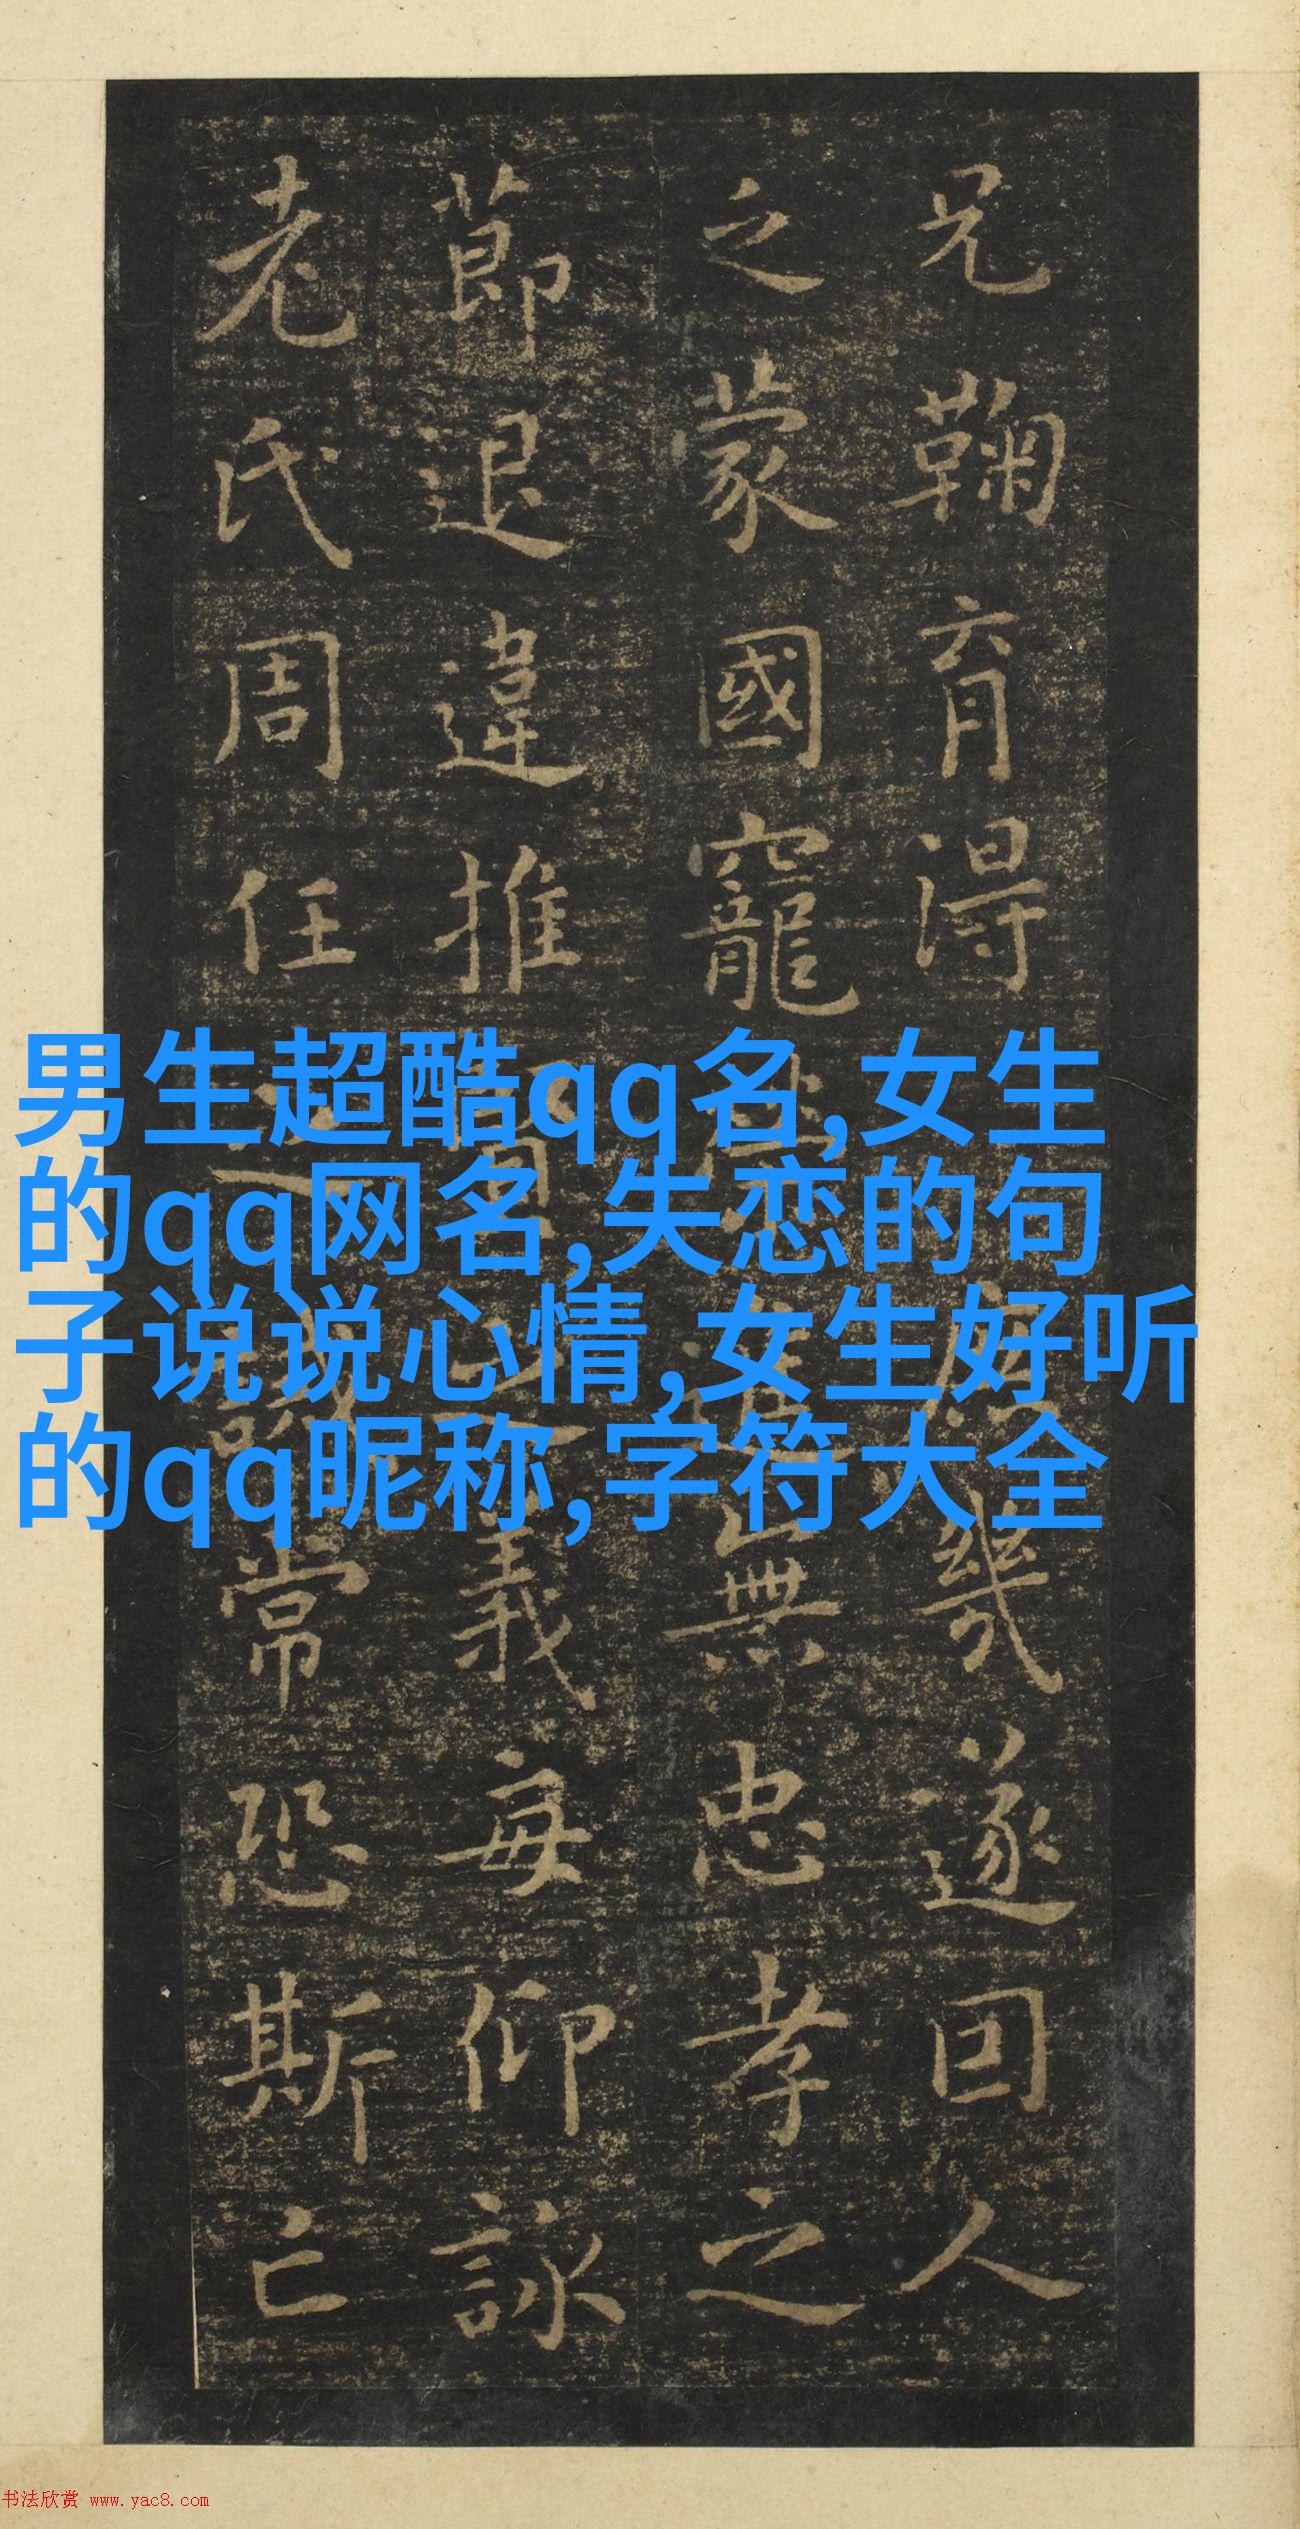 兄鞠育得幾遂因人
乏蒙國寵無忠孝之
節退違推義每仰詠
老氏周任常恐斯亡
男生超酷qq名,女生
的qq网名,失恋的句
子说说心情,女生好听
的qq昵称,字符大全
书法欣赏 www.yac8.com